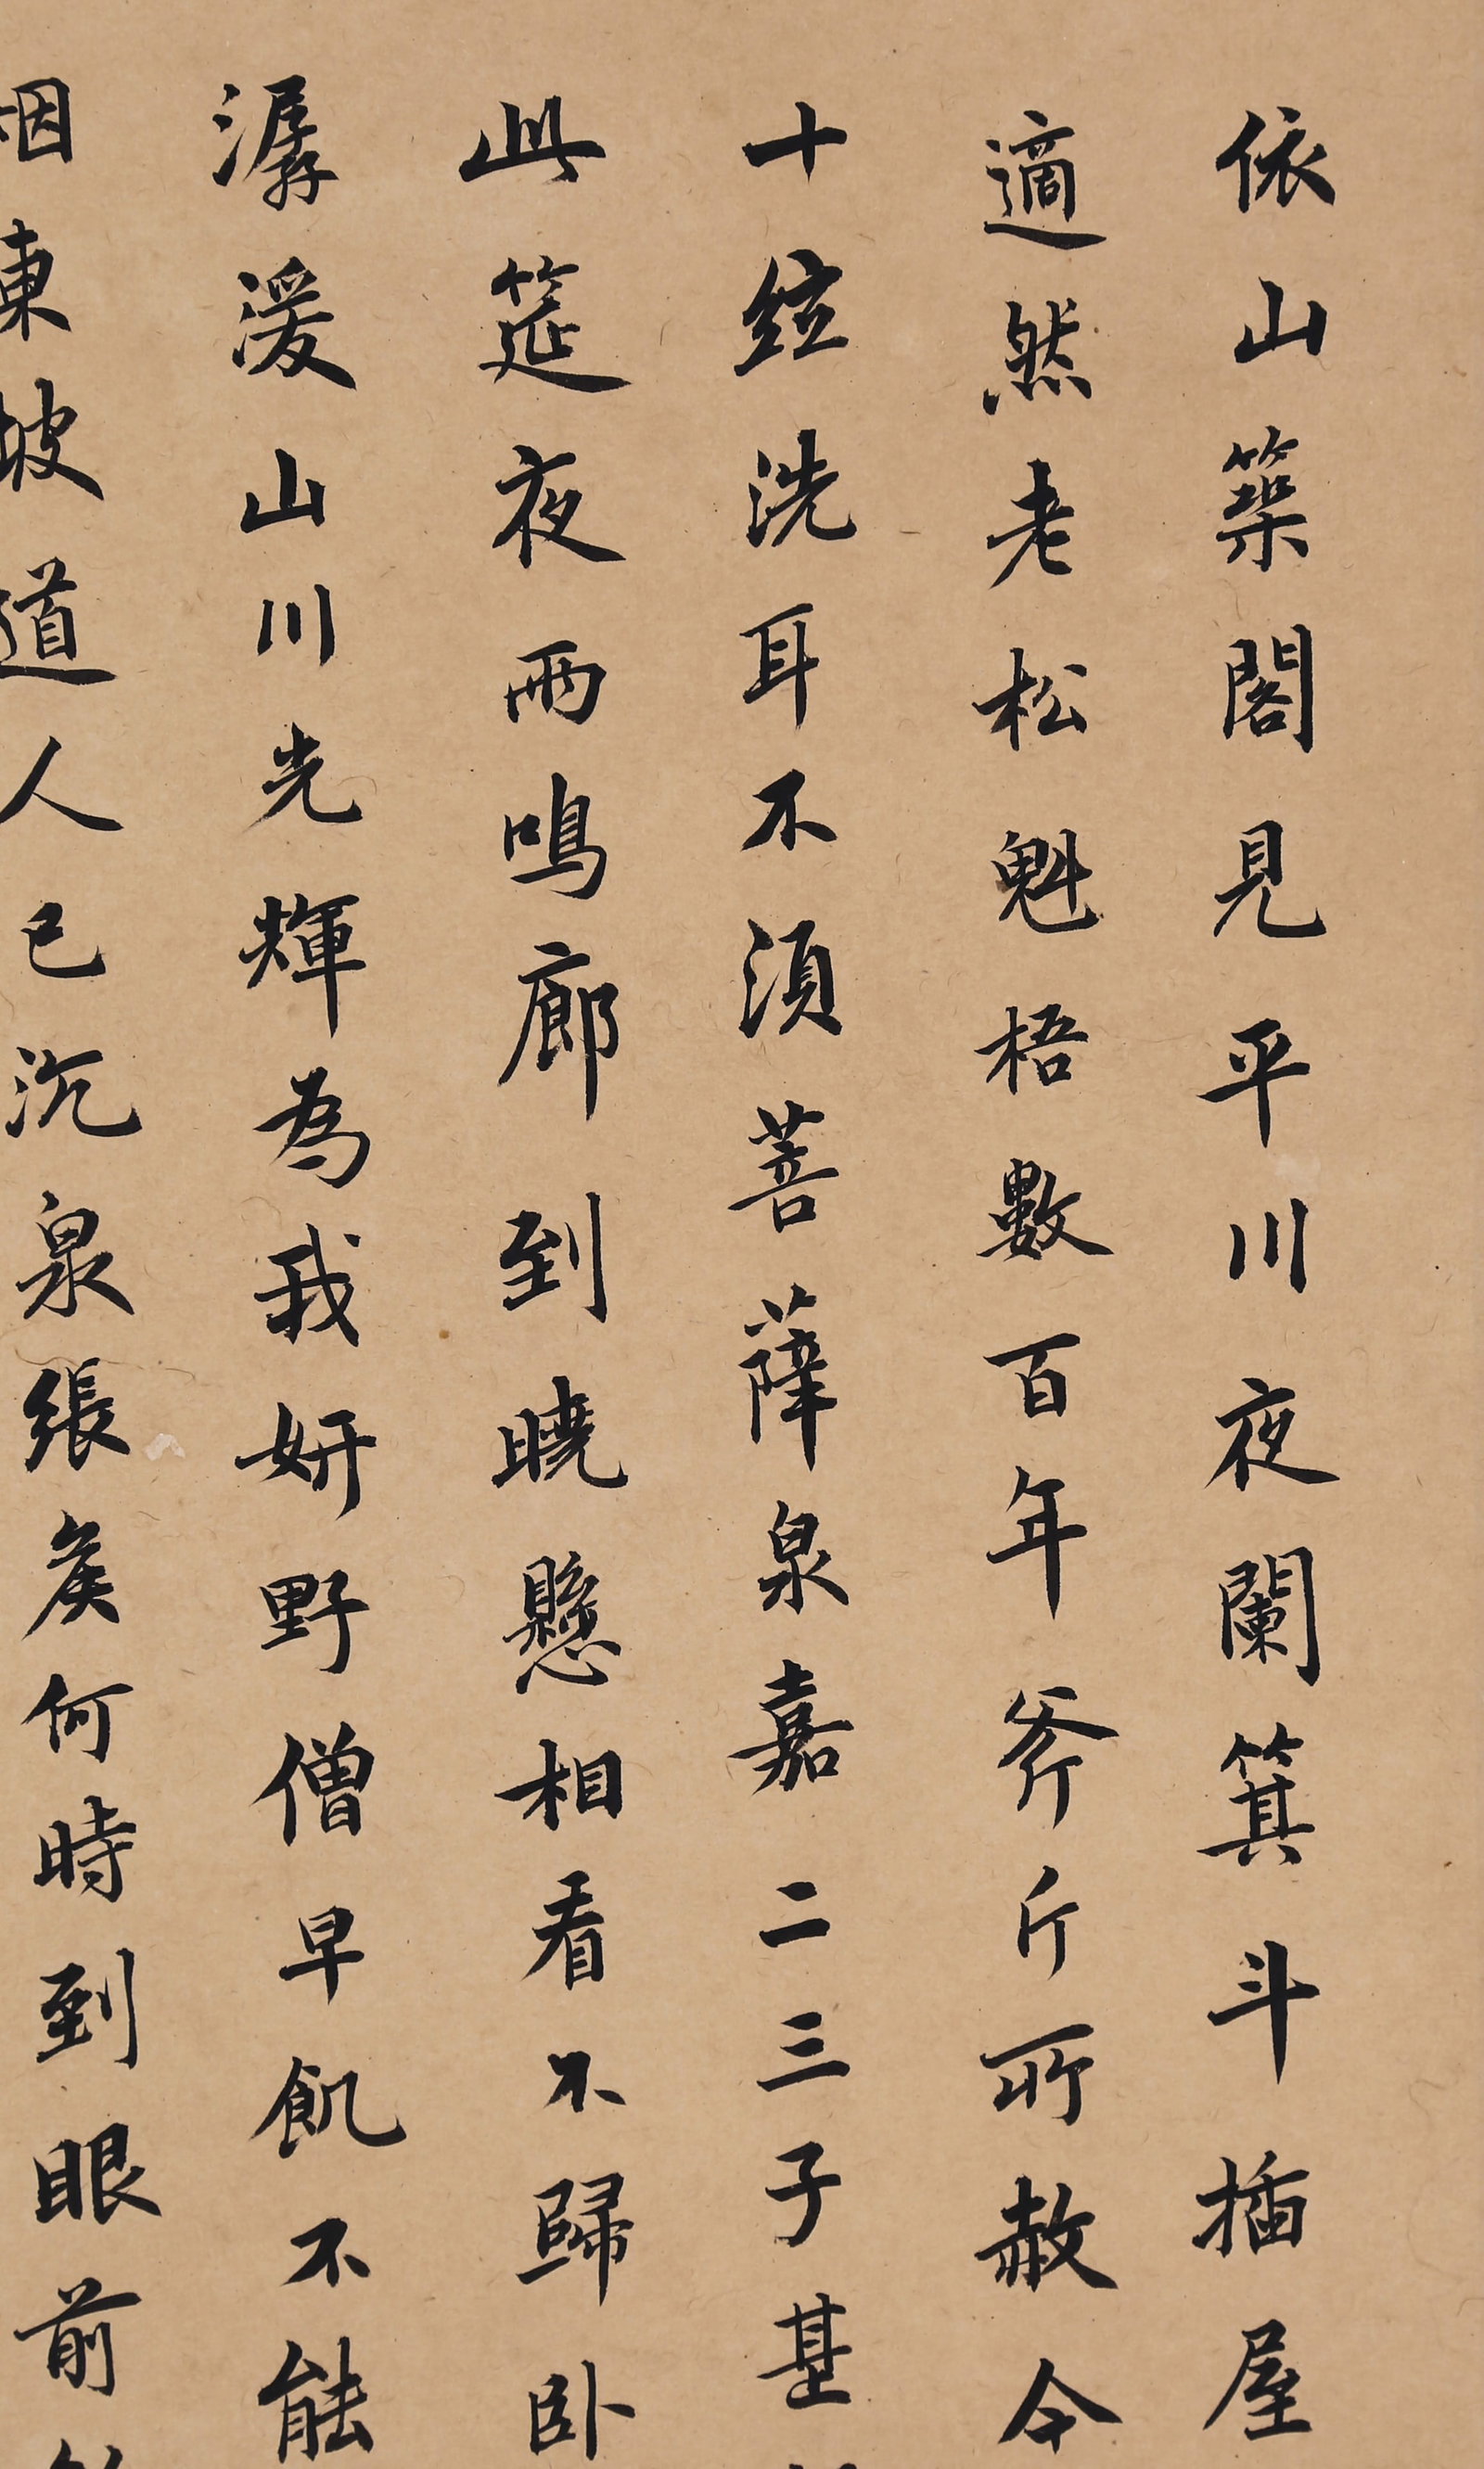 依山築閣見平川夜闌箕斗插屋
適然老松魁梧數百年斧斤所赦今
十絃洗耳不須菩薩泉嘉二三子甚
此筵夜雨鳴廊到曉懸相看不歸卧
潺湲山川光輝為我妍野僧早飢不能
烟東坡道人已沉泉張矦何時到眼前